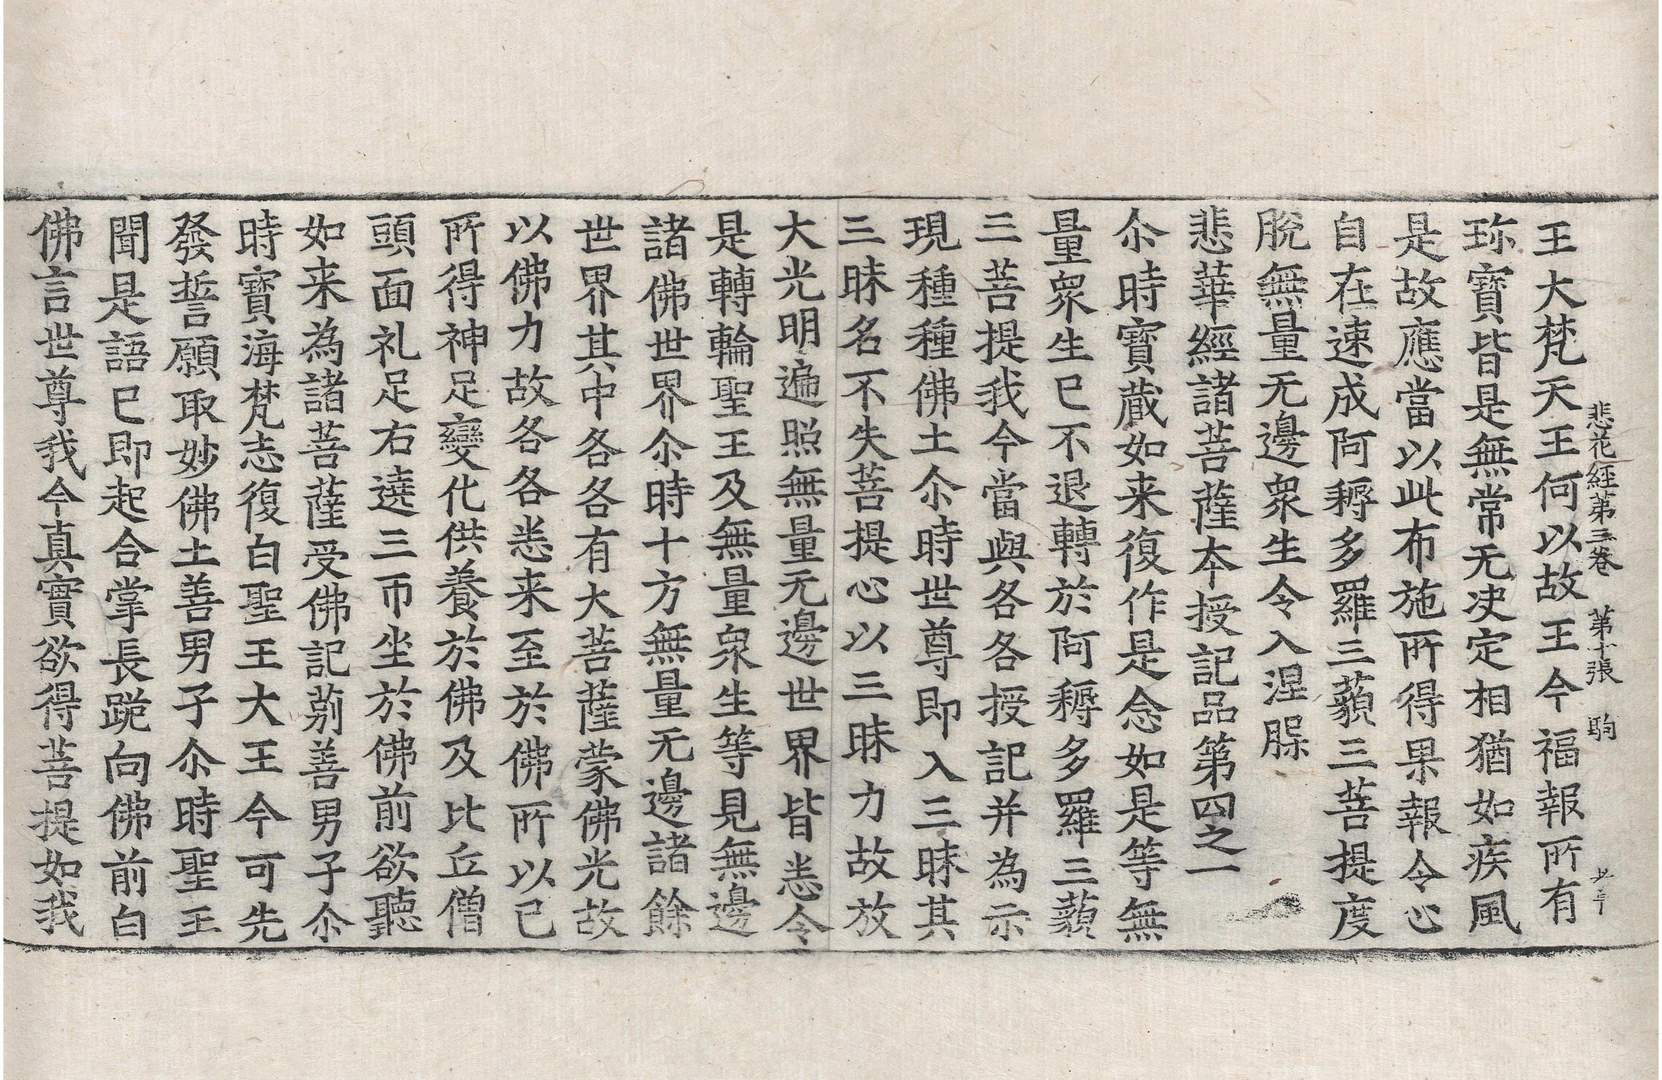 悲花経第三卷　第十張　駒
王大梵天王何以故王今福報所有
珎寶皆是無常无决定相猶如疾風
是故應當以此布施所得果報令心
自在速成阿耨多羅三藐三菩提度
脫無量无邊衆生令入涅槃
悲華經諸菩薩本授記品第四之一
尒時寶藏如来復作是念如是等無
量衆生已不退轉於阿耨多羅三藐
三菩提我今當與各各授記并為示
現種種佛土尒時世尊即入三昧其
三昧名不失菩提心以三昧力故放
大光明遍照無量无邊世界皆悉令
是轉輪聖王及無量衆生等見無邊
諸佛世界尒時十方無量无邊諸餘
世界其中各各有大菩薩蒙佛光故
以佛力故各各悉来至於佛所以己
所得神足變化供養於佛及比丘僧
頭面礼足右遶三帀坐於佛前欲聽
如来為諸菩薩受佛記莂善男子尒
時寶海梵志復白聖王大王今可先
發誓願取妙佛土善男子尒時聖王
聞是語已即起合掌長跪向佛前白
佛言世尊我今真實欲得菩提如我